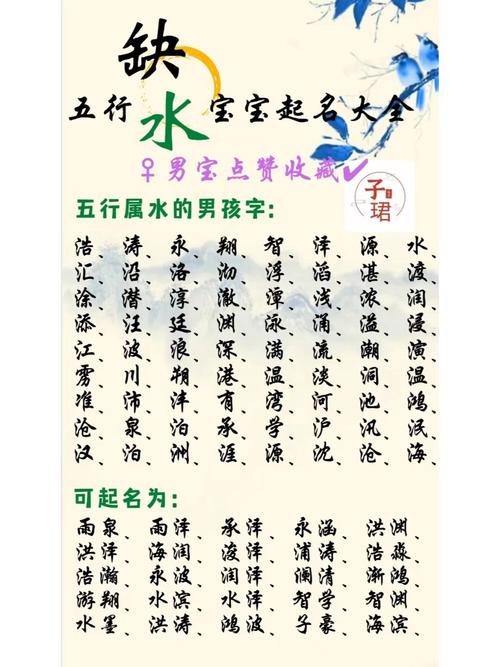 缺
五行水宝宝起名大全
♀男宝点赞收藏✓
子珺
五行属水的男孩字:
浩、涛、永、翔、智、泽、源、水
汇、沿、洛、沏、浮、滔、湛、渡、
涂、潜、淳、澈、潭、浅、浓、润、
添、汪、廷、渊、泳、涌、溢、浸、
江、波、浪、深、满、流、潮、演、
雾、川、朔、港、温、淡、洞、温、
准、沛、沣、有、湾、河、池、鸿、
沧、泉、泊、承、学、沪、汛、泯、
汉、泊、洲、涯、源、沈、沧、海、
可起名为:
雨泉、雨泽、承泽、永涵、洪渊、
洪泽、海润、浚泽、浦涛、浩淼、
浩瀚、永波、润泽、澜清、渐鸿、
游翔、水滨、水泽、智学、智渊、
水墨、洪涛、鸿波、子豪、海滨、